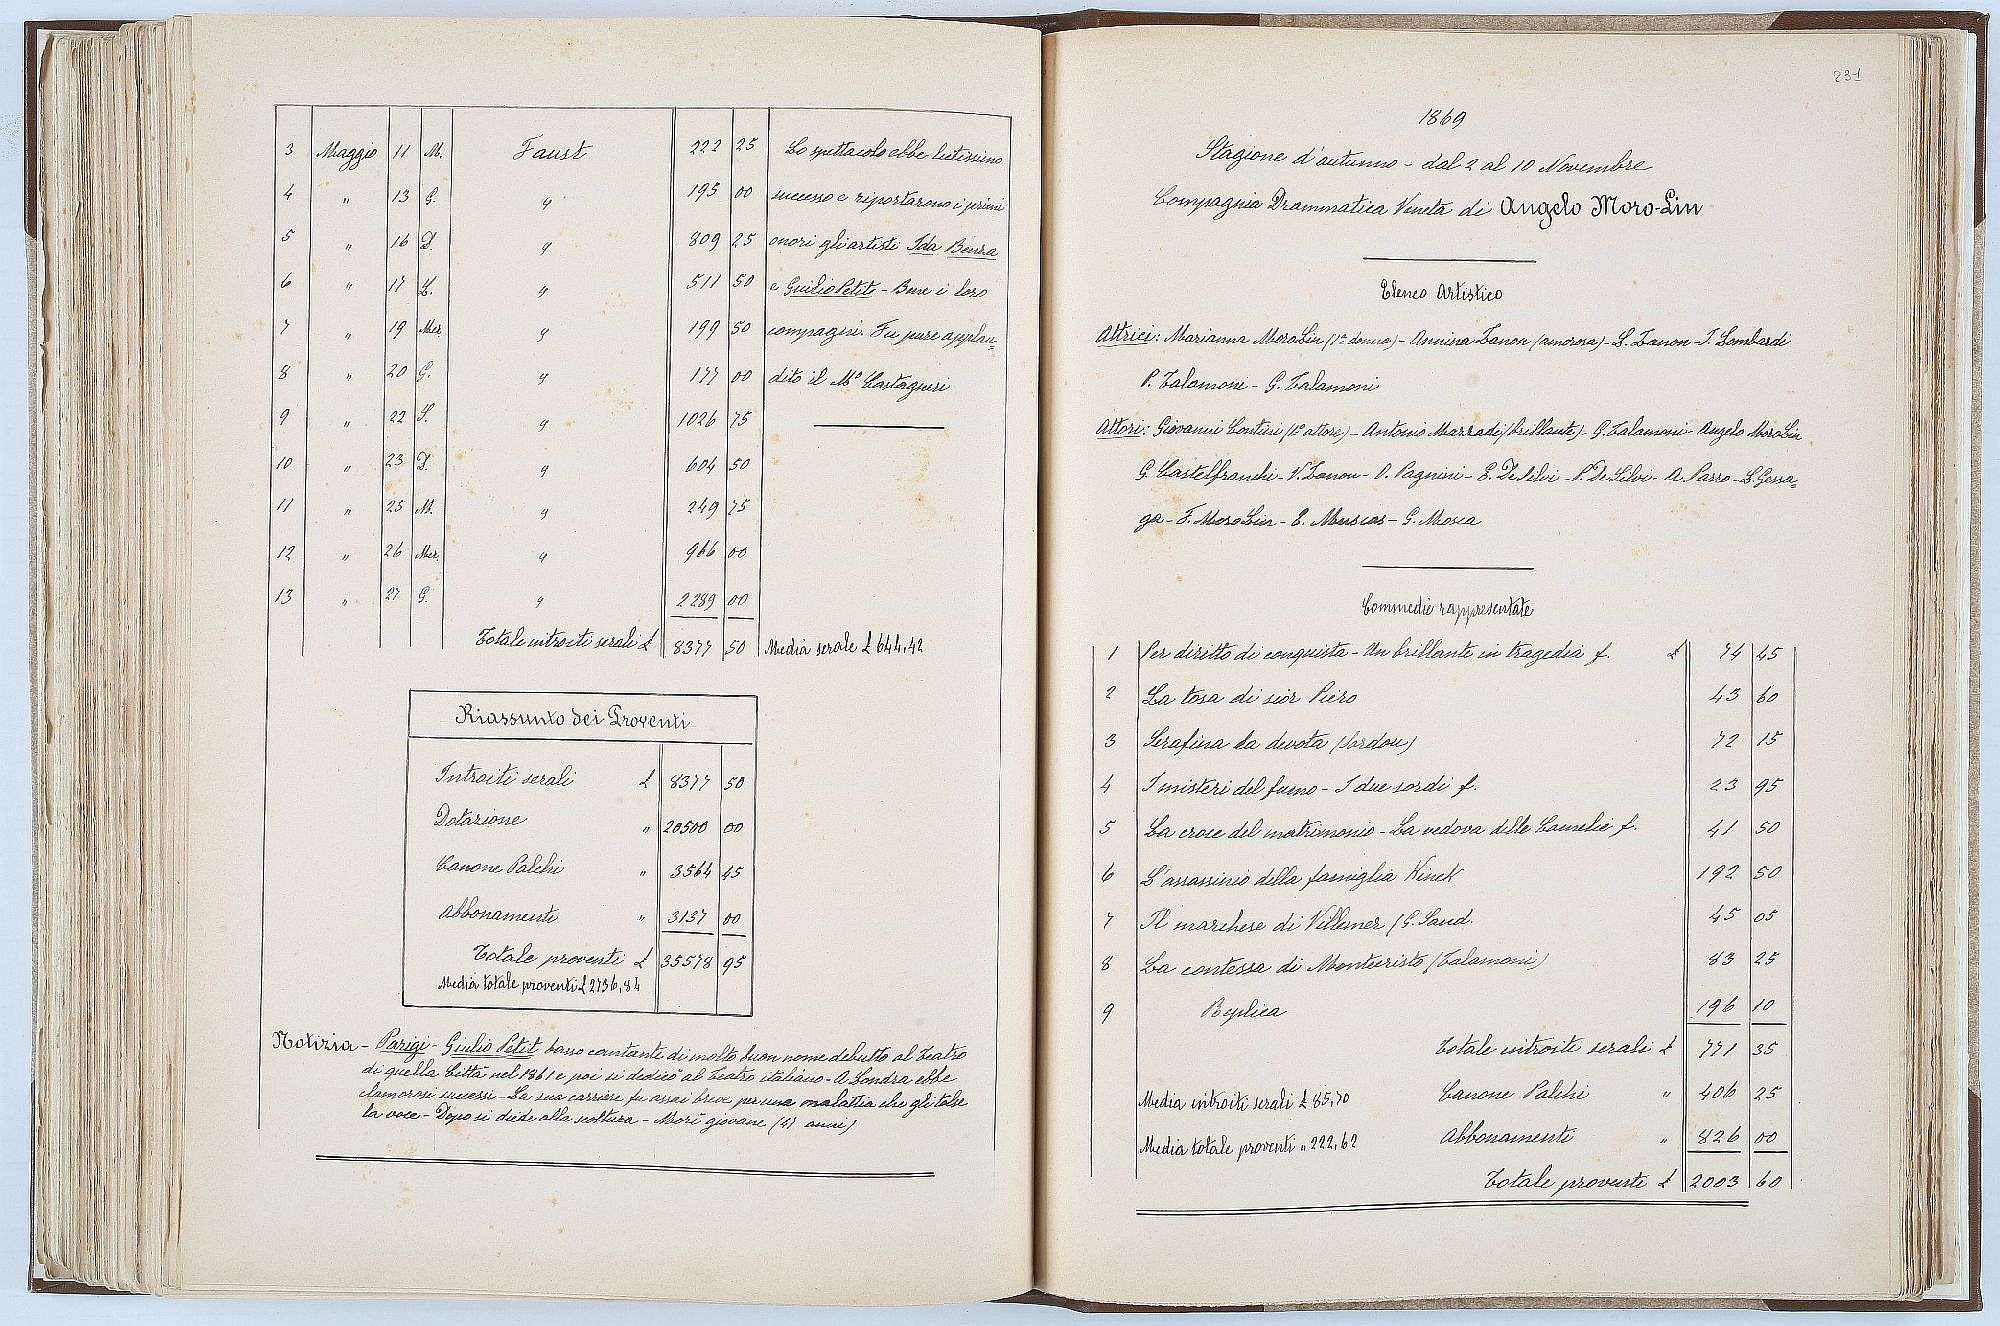 3 Maggio 11 M. Faust 222 25 Lo spettacolo ebbe lietissimo
4 " 13 G. " 195 00 successo e riportarono i primi
5 " 16 D. " 809 25 onori gli artisti Ida Benza
6 " 17 L. " 511 50 e Giulio Petit - Bene i loro
7 " 19 Mer. " 199 50 compagni. Fu pure applau=
8 " 20 G. " 177 00 dito il Mo Castagneri
9 " 22 S. " 1026 75
10 " 23 D. " 604 50
11 " 25 M. " 249 75
12 " 26 Mer. " 966 00
13 " 27 G. " 2289 00
Totale introiti serali £ 8377 50 Media serale £ 644,42
Riassunto dei Proventi
Introiti serali £ 8377 50
Dotazione " 20500 00
Canone Palchi " 3564 45
Abbonamenti " 3137 00
Totale proventi £ 35578 95
Media totale proventi £ 2736,84
Notizia - Parigi - Giulio Petit basso cantante di molto buon nome debuttò al Teatro
di quella Città nel 1861 e poi si dedicò al Teatro italiano - A Londra ebbe
clamorosi successi - La sua carriera fu assai breve per una malattia che gli tolse
la voce - Dopo si diede alla scoltura - Morì giovane (47 anni)
231
1869
Stagione d'autunno - dal 2 al 10 Novembre
Compagnia Drammatica Veneta di Angelo Moro-Lin
Elenco Artistico
Attrici: Marianna MoroLin (1a donna) - Annina Zanon (amorosa) - L. Zanon - I. Lombardi
P. Talamoni - G. Talamoni
Attori: Giovanni Contini (1o attore) - Antonio Marzadi (brillante) - G. Talamoni - Angelo MoroLin
G. Castelfranchi - V. Zanon - O. Pagnini - E. De Silvi - P. De Silvi - A. Passo - L. Gossa=
ga - F. MoroLin - E. - G. Mosca
Commedie rappresentate
1 Per diritto di conquista - Un brillante in tragedia f. £ 74 45
2 La tosa di siòr Piero 43 60
3 Serafina la devota (Sardou) 72 15
4 I misteri del fumo - I due sordi f. 23 95
5 La crose del matrimonio - La vedova delle Camelie f. 41 50
6 L'assassinio della famiglia Kinck 192 50
7 Il marchese di Villemer (G. Sand. 45 05
8 La contessa di Montecristo (Talamoni) 83 25
9 Replica 196 10
Totale introiti serali £ 771 35
Media introiti serali £ 85,70 Canone Palchi " 406 25
Media totale proventi " 222,62 Abbonamenti " 826 00
Totale proventi £ 2003 60